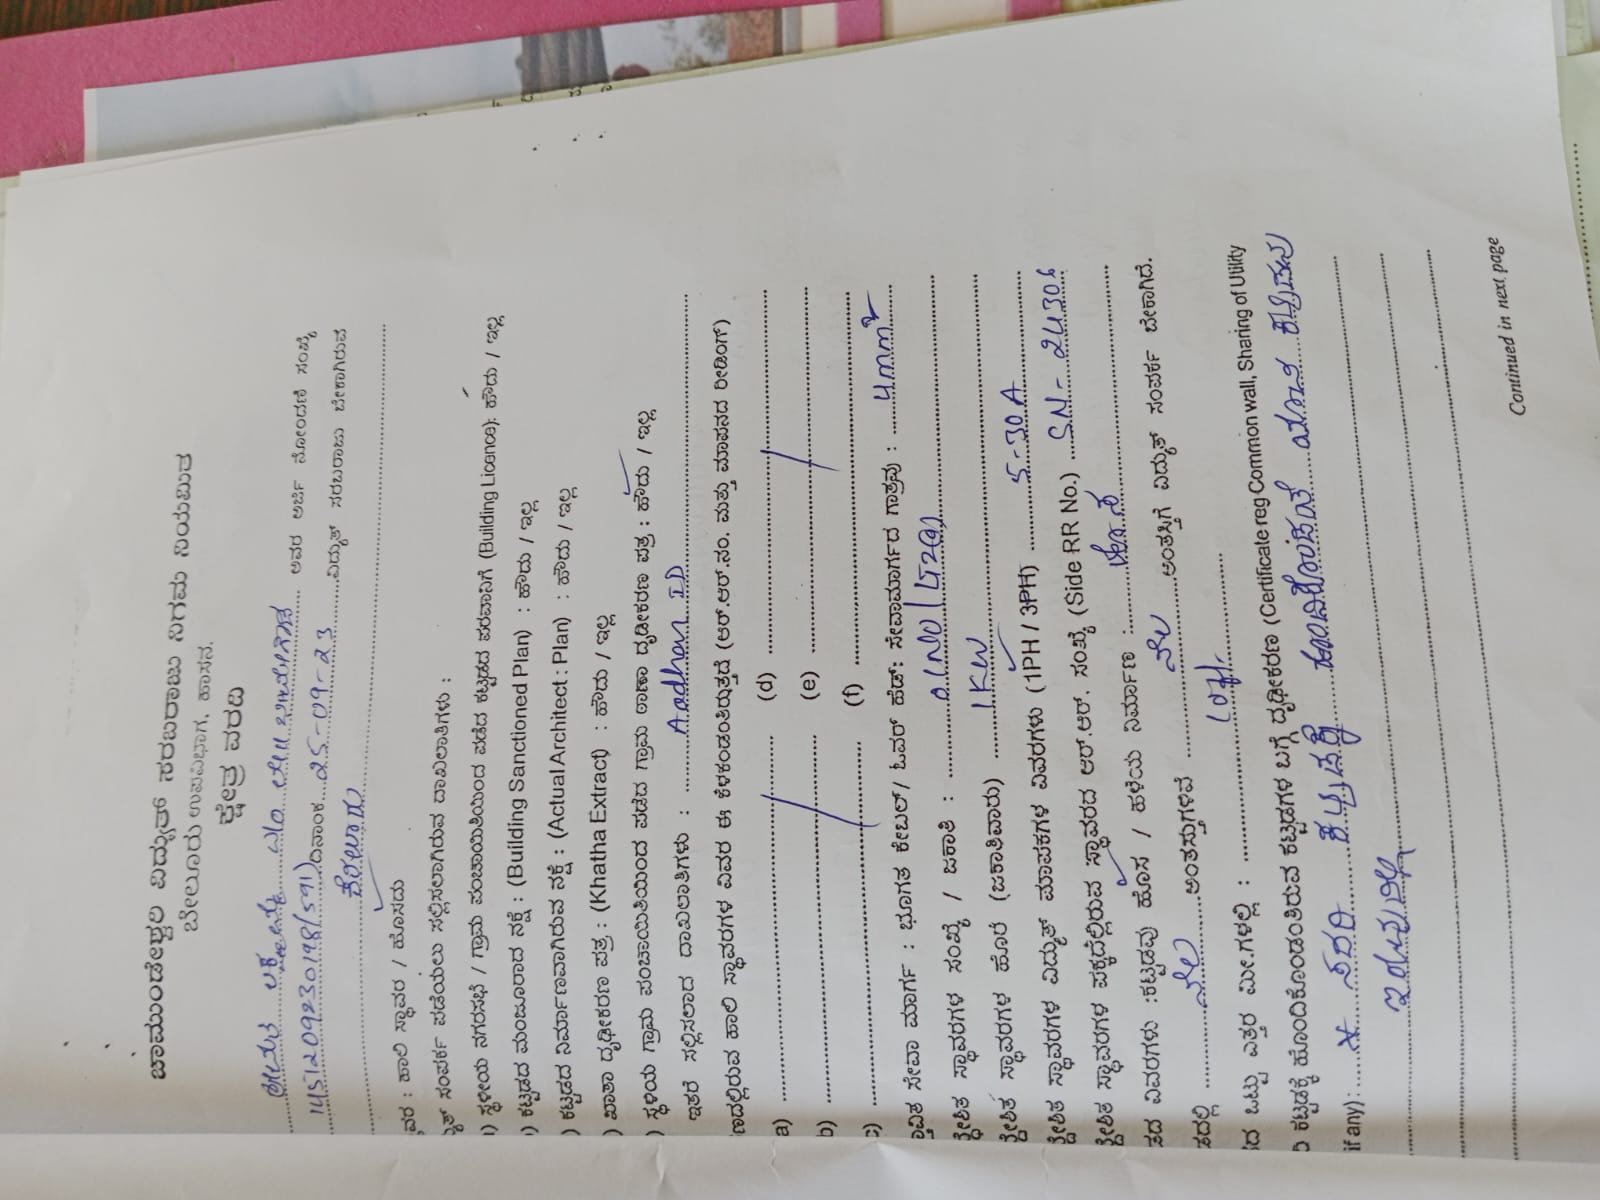 ಚಾಮುಂಡೇಶ್ವರಿ ವಿದ್ಯುತ್ ಸರಬರಾಜು ನಿಗಮ ನಿಯಮಿತ
ಬೇಲೂರು ಉಪವಿಭಾಗ, ಹಾಸನ.
ಕ್ಷೇತ್ರ ವರದಿ
ಅವರ ಅರ್ಜಿ ನೋಂದಣಿ ಸಂಖ್ಯೆ
ದಿನಾಂಕ 25-09-23 ವಿದ್ಯುತ್ ಸರಬರಾಜು ಬೇಕಾಗಿರುವ
ವರ : ಹಾಲಿ ಸ್ಥಾವರ / ಹೊಸದು
ಸಂಪರ್ಕ ಪಡೆಯಲು ಸಲ್ಲಿಸಲಾಗಿರುವ ದಾಖಲಾತಿಗಳು :
) ಸ್ಥಳೀಯ ನಗರಸಭೆ / ಗ್ರಾಮ ಪಂಚಾಯಿತಿಯಿಂದ ಪಡೆದ ಕಟ್ಟಡದ ಪರವಾನಿಗೆ (Building Licence): ಹೌದು / ಇಲ್ಲ
) ಕಟ್ಟಡದ ಮಂಜೂರಾದ ನಕ್ಷೆ : (Building Sanctioned Plan) : ಹೌದು / ಇಲ್ಲ
) ಕಟ್ಟಡದ ನಿರ್ಮಾಣವಾಗಿರುವ ನಕ್ಷೆ : (Actual Architect : Plan) : ಹೌದು / ಇಲ್ಲ
) ಖಾತಾ ದೃಢೀಕರಣ ಪತ್ರ : (Khatha Extract) : ಹೌದು / ಇಲ್ಲ
) ಸ್ಥಳೀಯ ಗ್ರಾಮ ಪಂಚಾಯಿತಿಯಿಂದ ಪಡೆದ ಗ್ರಾಮ ಠಾಣಾ ದೃಢೀಕರಣ ಪತ್ರ : ಹೌದು / ಇಲ್ಲ
ಇತರೆ ಸಲ್ಲಿಸಲಾದ ದಾಖಲಾತಿಗಳು : Aadhar ID
ದಲ್ಲಿರುವ ಹಾಲಿ ಸ್ಥಾವರಗಳ ವಿವರ ಈ ಕೆಳಕಂಡಂತಿರುತ್ತದೆ (ಆರ್.ಆರ್.ಸಂ. ಮತ್ತು ಮಾಪನದ ರೀಡಿಂಗ್)
a) (d)
b) (e)
c) (f)
ಸೇವಾ ಮಾರ್ಗ : ಭೂಗತ ಕೇಬಲ್ / ಓವರ್ ಹೆಡ್: ಸೇವಾಮಾರ್ಗದ ಗಾತ್ರವು : 4mm²
ಸ್ಥಾವರಗಳ ಸಂಖ್ಯೆ / ಜಕಾತಿ :
ಸ್ಥಾವರಗಳ ಹೊರೆ (ಜಕಾತಿವಾರು) 1KW
ಸ್ಥಾವರಗಳ ವಿದ್ಯುತ್ ಮಾಪಕಗಳ ವಿವರಗಳು (1PH / 3PH) 5-30A
ಸ್ಥಾವರಗಳ ಪಕ್ಕದಲ್ಲಿರುವ ಸ್ಥಾವರದ ಆರ್.ಆರ್. ಸಂಖ್ಯೆ (Side RR No.) SN-24306
ವಿವರಗಳು :ಕಟ್ಟಡವು ಹೊಸ / ಹಳೆಯ ನಿರ್ಮಾಣ : ಹೊಸ
ನೆಲ ಅಂತಸ್ತುಗಳಿವೆ ನೆಲ ಅಂತಸ್ತಿಗೆ ವಿದ್ಯುತ್ ಸಂಪರ್ಕ ಬೇಕಾಗಿದೆ.
ಒಟ್ಟು ಎತ್ತರ ಮೀ.ಗಳಲ್ಲಿ :
ಕಟ್ಟಡಕ್ಕೆ ಹೊಂದಿಕೊಂಡಂತಿರುವ ಕಟ್ಟಡಗಳ ಬಗ್ಗೆ ದೃಢೀಕರಣ (Certificate reg Common wall, Sharing of Utility
if any):
Continued in next page